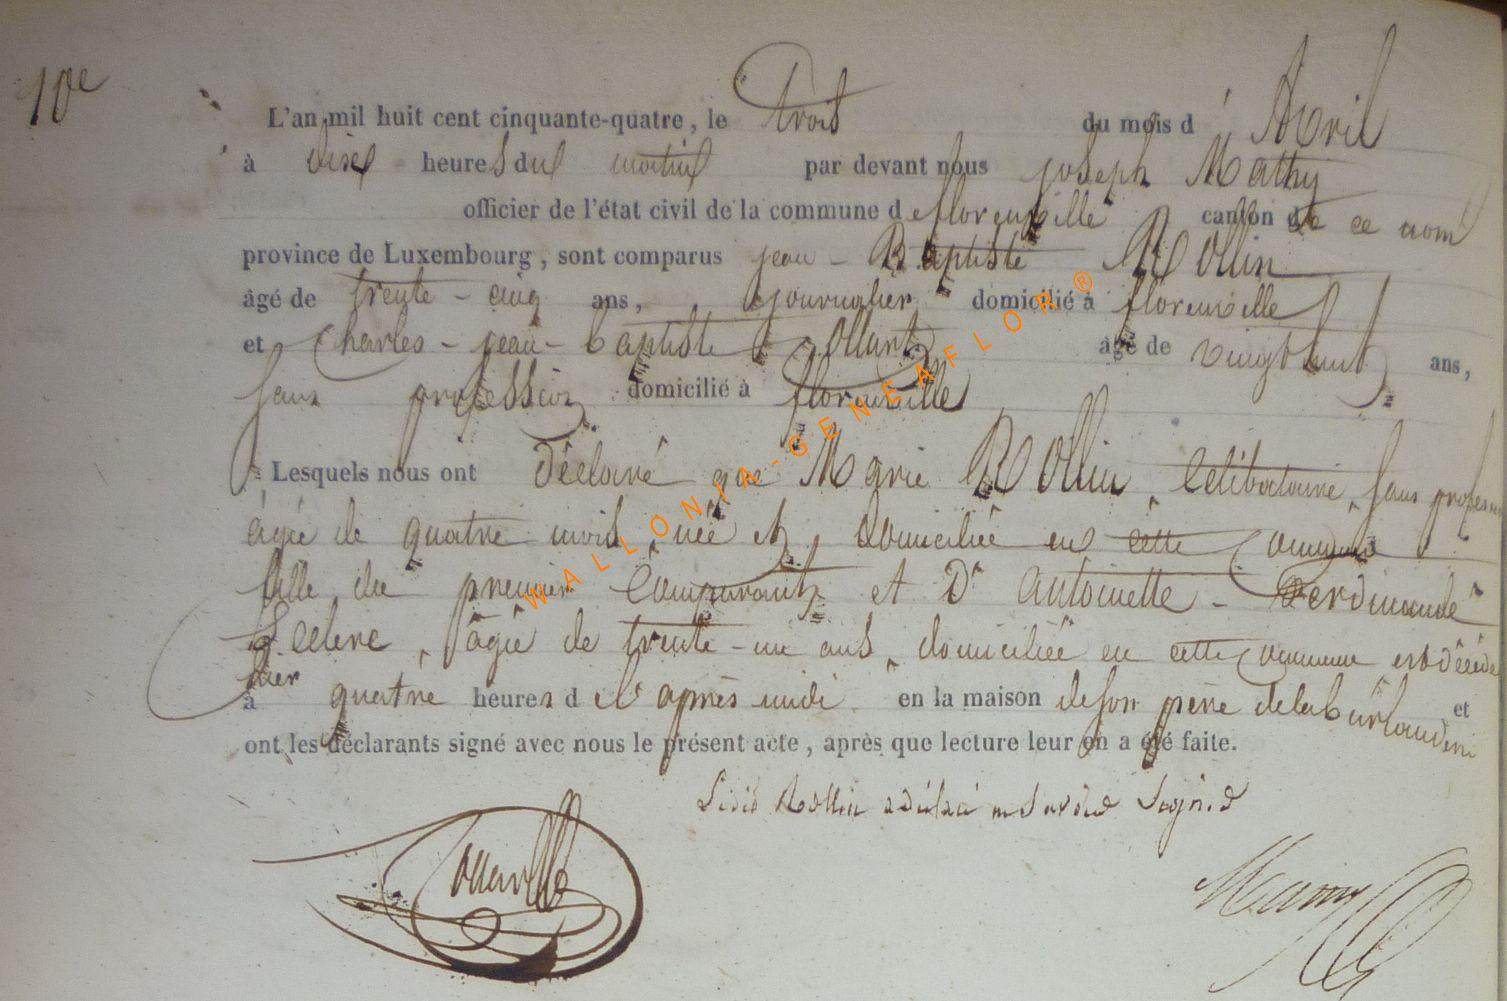 10e
L'an mil huit cent cinquante-quatre, le trois du mois d'Avril
à dix heures du matin par devant nous joseph Mathy
officier de l'état civil de la commune de florenville canton de ce nom
province de Luxembourg, sont comparus jean-Baptiste Rollin
âgé de trente-cinq ans, journalier domicilié à florenville
et Charles-jean-baptiste âgé de vingt huit ans,
sans profession domicilié à florenville
Lesquels nous ont déclaré que Marie Rollin, Célibataire, sans profession
âgée de quatre mois, née et domiciliée en cette Commune
fille du premier Comparant et De antoinette-ferdinande
Leclere, âgée de trente-un ans, domiciliée en cette Commune est décédée
hier
à quatre heures de l'après midi en la maison de son père de la et
ont les déclarants signé avec nous le présent acte, après que lecture leur en a été faite.
Rollin a déclaré ne savoir signé
WALLONIA-GENEAFLOR®